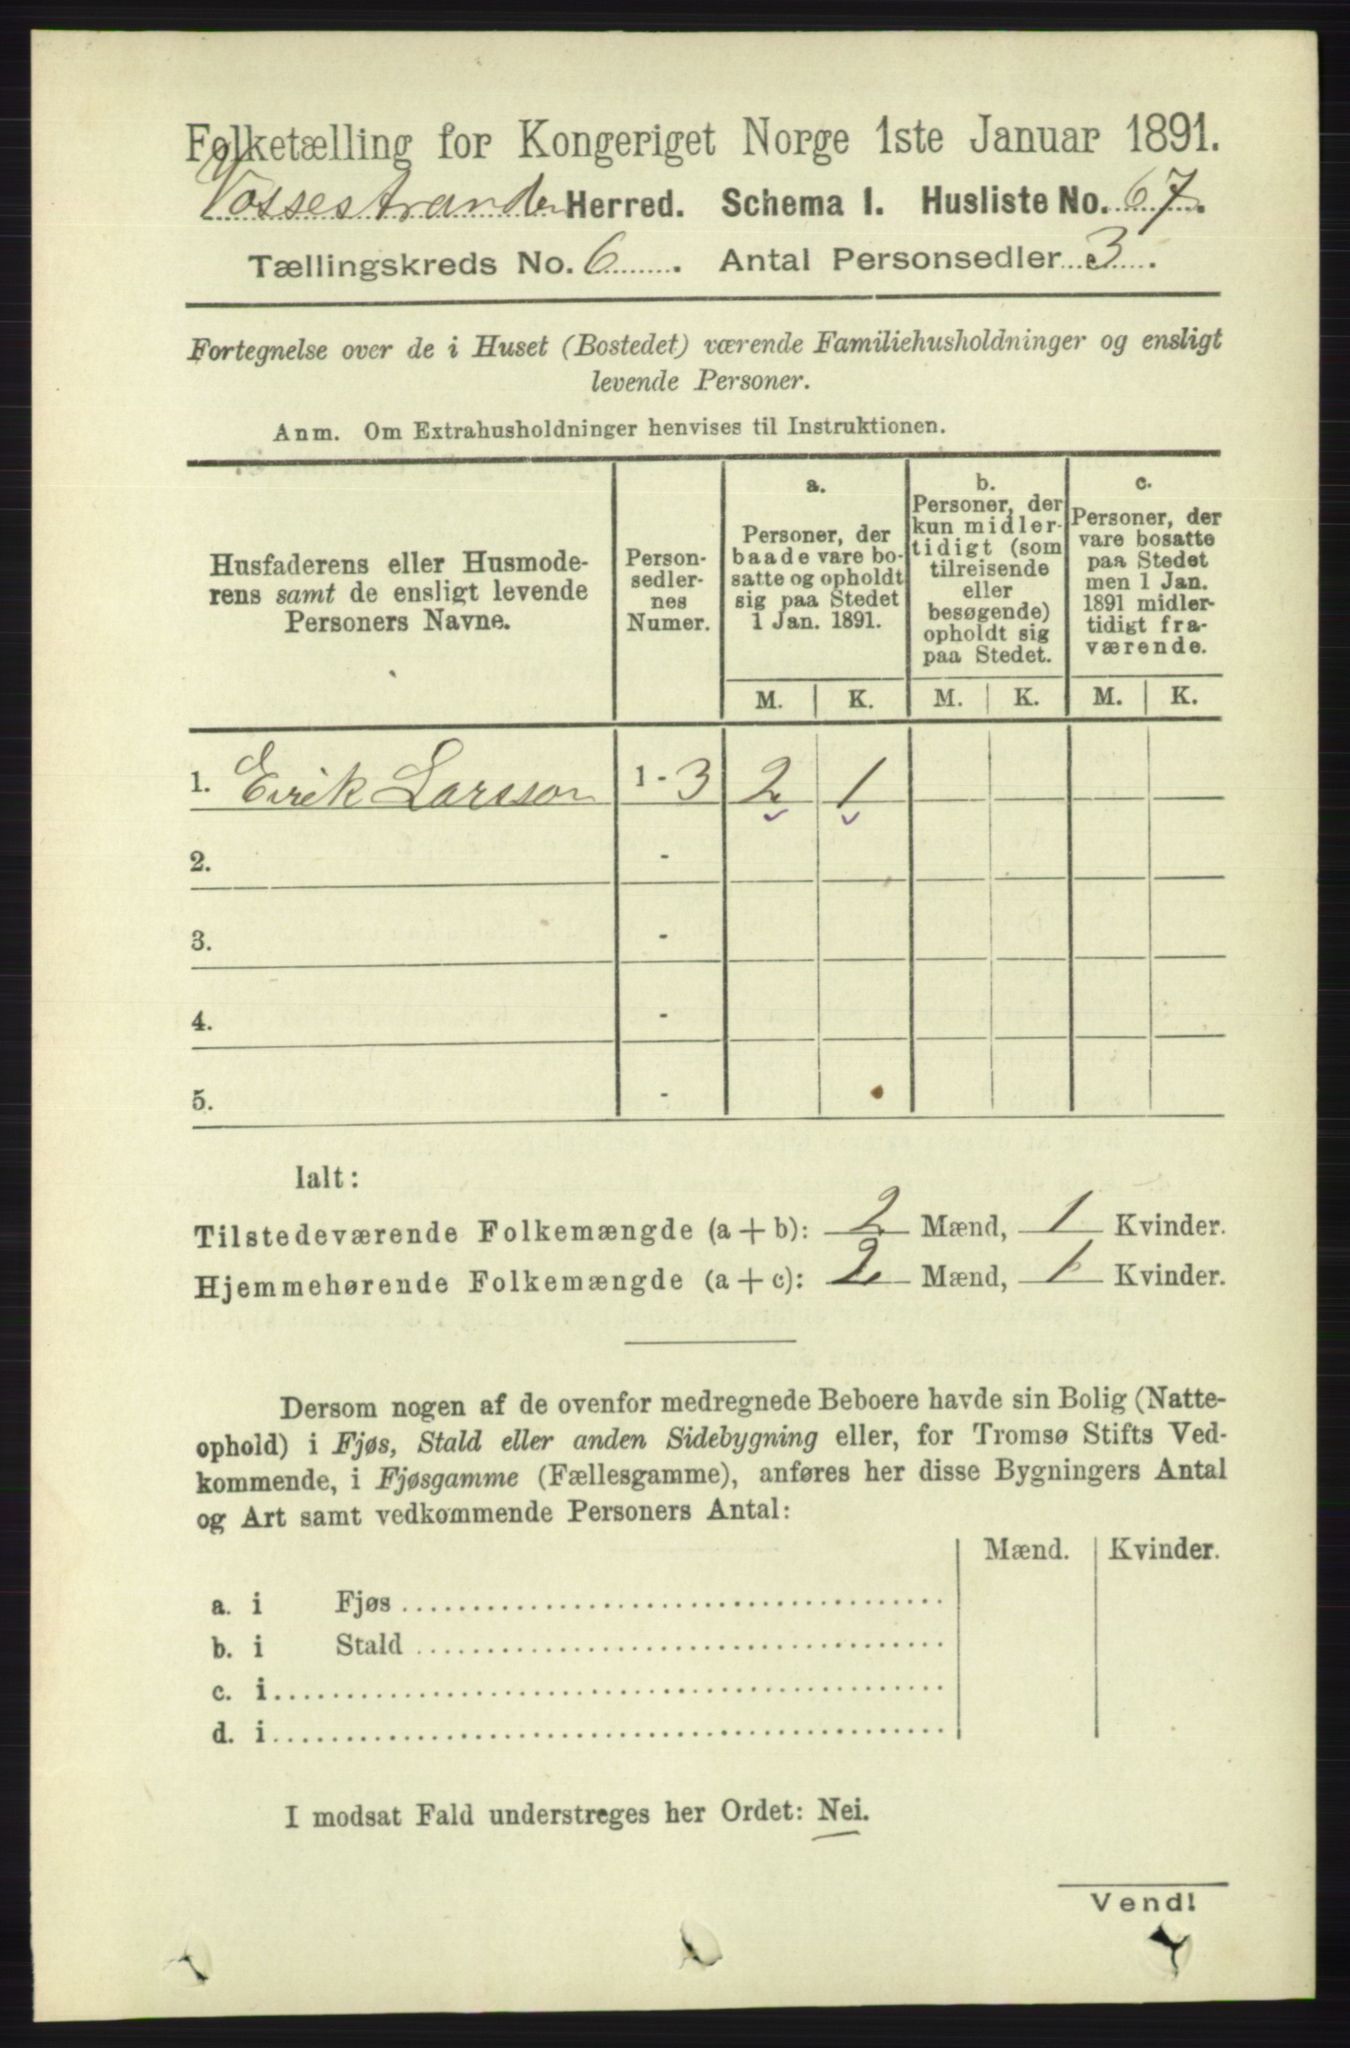 Folketælling for Kongeriget Norge 1ste Januar 1891.
Vossestranden Herred. Schema 1. Husliste No. 67.
Tællingskreds No. 6. Antal Personsedler 3.
Fortegnelse over de i Huset (Bostedet) værende Familiehusholdninger og ensligt
levende Personer.
Anm. Om Extrahusholdninger henvises til Instruktionen.
Husfaderens eller Husmode-
rens samt de ensligt levende
Personers Navne.
Person-
sedler-
nes
Numer.
a.
Personer, der
baade vare bo-
satte og opholdt
sig paa Stedet
1 Jan. 1891.
b.
Personer, der
kun midler-
tidigt (som
tilreisende
eller
besøgende)
opholdt sig
paa Stedet.
c.
Personer, der
vare bosatte
paa Stedet
men 1 Jan.
1891 midler-
tidigt fra-
værende.
M. K. M. K. M. K.
1. Eirik Larsson 1 - 3 2 1
2. -
3. -
4. -
5. -
Ialt:
Tilstedeværende Folkemængde (a + b): 2 Mænd, 1 Kvinder.
Hjemmehørende Folkemængde (a + c): 2 Mænd, 1 Kvinder.
Dersom nogen af de ovenfor medregnede Beboere havde sin Bolig (Natte-
ophold) i Fjøs, Stald eller anden Sidebygning eller, for Tromsø Stifts Ved-
kommende, i Fjøsgamme (Fællesgamme), anføres her disse Bygningers Antal
og Art samt vedkommende Personers Antal:
Mænd. Kvinder.
a. i Fjøs
b. i Stald
c. i
d. i
I modsat Fald understreges her Ordet: Nei.
Vend!